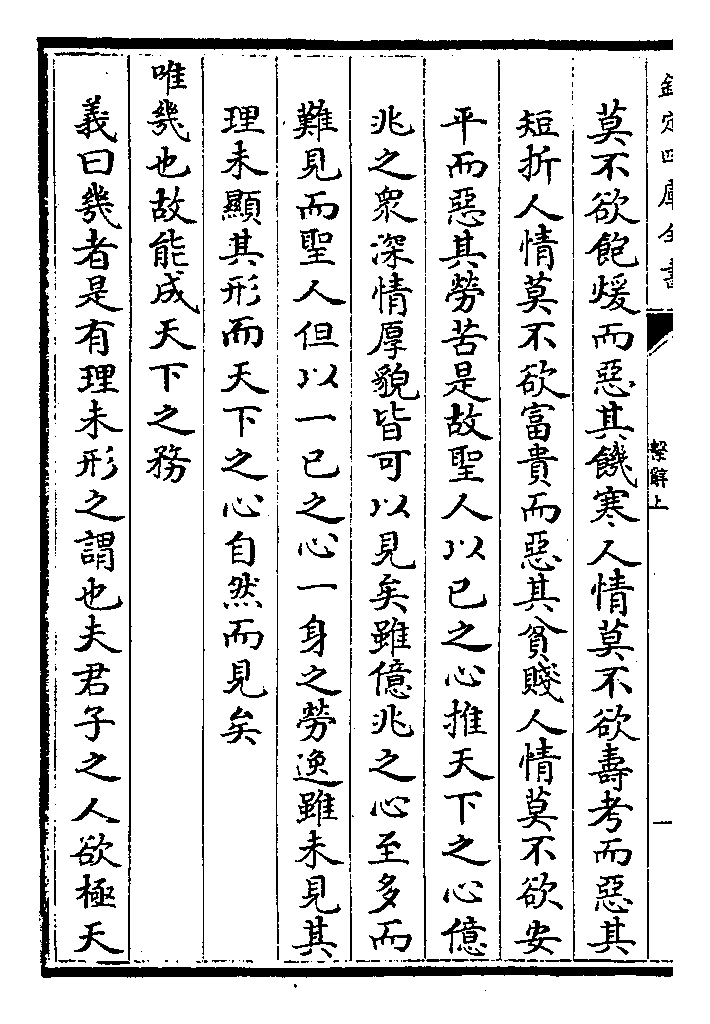 欽定四庫全書
繫辭上
莫不欲飽煖而惡其饑寒人情莫不欲壽考而惡其
短折人情莫不欲富貴而惡其貧賤人情莫不欲安
平而惡其勞苦是故聖人以已之心推天下之心億
兆之衆深情厚貌皆可以見矣雖億兆之心至多而
難見而聖人但以一已之心一身之勞逸雖未見其
理未顯其形而天下之心自然而見矣
唯幾也故能成天下之務
義曰幾者是有理未形之謂也夫君子之人欲極天